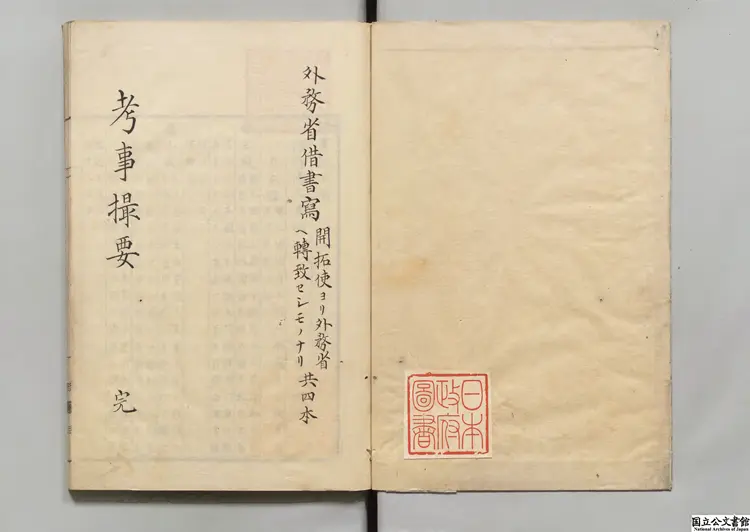 日本
政府
圖書
外務省借書寫 開拓使ヨリ外務省
ヘ轉致セシモノナリ 共四本
考事撮要 完
国立公文書館
National Archives of Japan